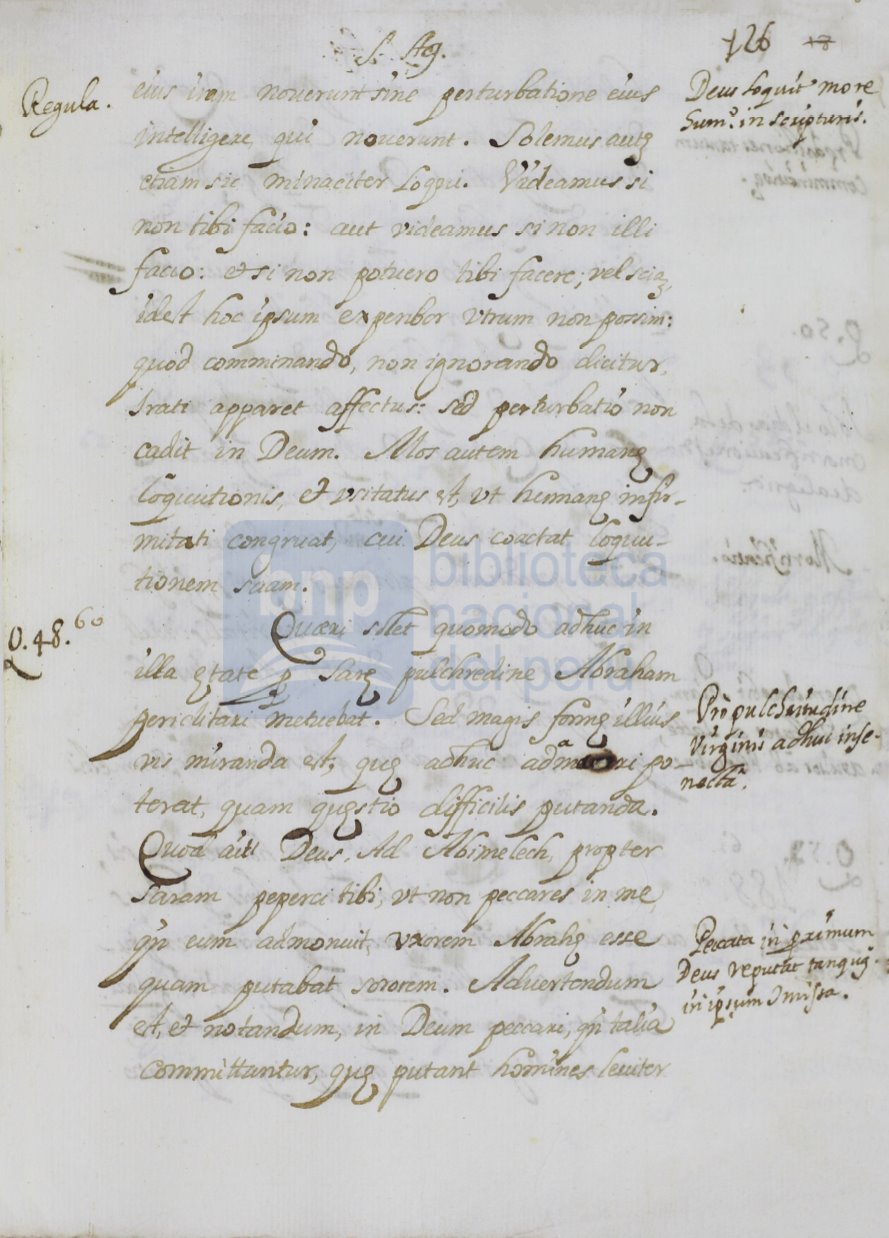 S. Ag.
126 18
Regula.
eius iram noverunt sine perturbatione eius
intelligere, qui noverunt. Solemus autē
etiam sic minaciter loqui. Videamus si
non tibi facio: aut videamus si non illi
facio: et si non potuero tibi facere; vel sciā,
idest hoc ipsum experibor utrum non possim:
quod comminando, non ignorando dicitur,
Irati apparet affectus: sed perturbatio non
cadit in Deum. Mos autem humanę
loquutionis, et usitatus est, ut humanę infir-
mitati congruat, cui Deus coactat loquu-
tionem suam.
Deus loquit more
hum.º in scripturis.
Q. 48. 60
Quæri solet quomodo adhuc in
illa ętate p Sarę pulchredine Abraham
periclitari metuebat. Sed magis formę illius
vis miranda est, quę adhuc adamari po-
terat, quam quęstio difficilis putanda.
Quod ait Deus, Ad Abimelech, propter
Saram peperci tibi, ut non peccares in me
qn eum admonuit, uxorem Abrahę esse
quam putabat sororem. Advertendum
est, et notandum, in Deum peccari, qn talia
committuntur, quę putant homines leviter
Pro pulchritudine
Virginis adhuc in se-
nectā.
Peccata in proximum
Deus reputat tanquā
in ipsum Imissa.
Q. 50.
biblioteca
nacional
del perú
bnp